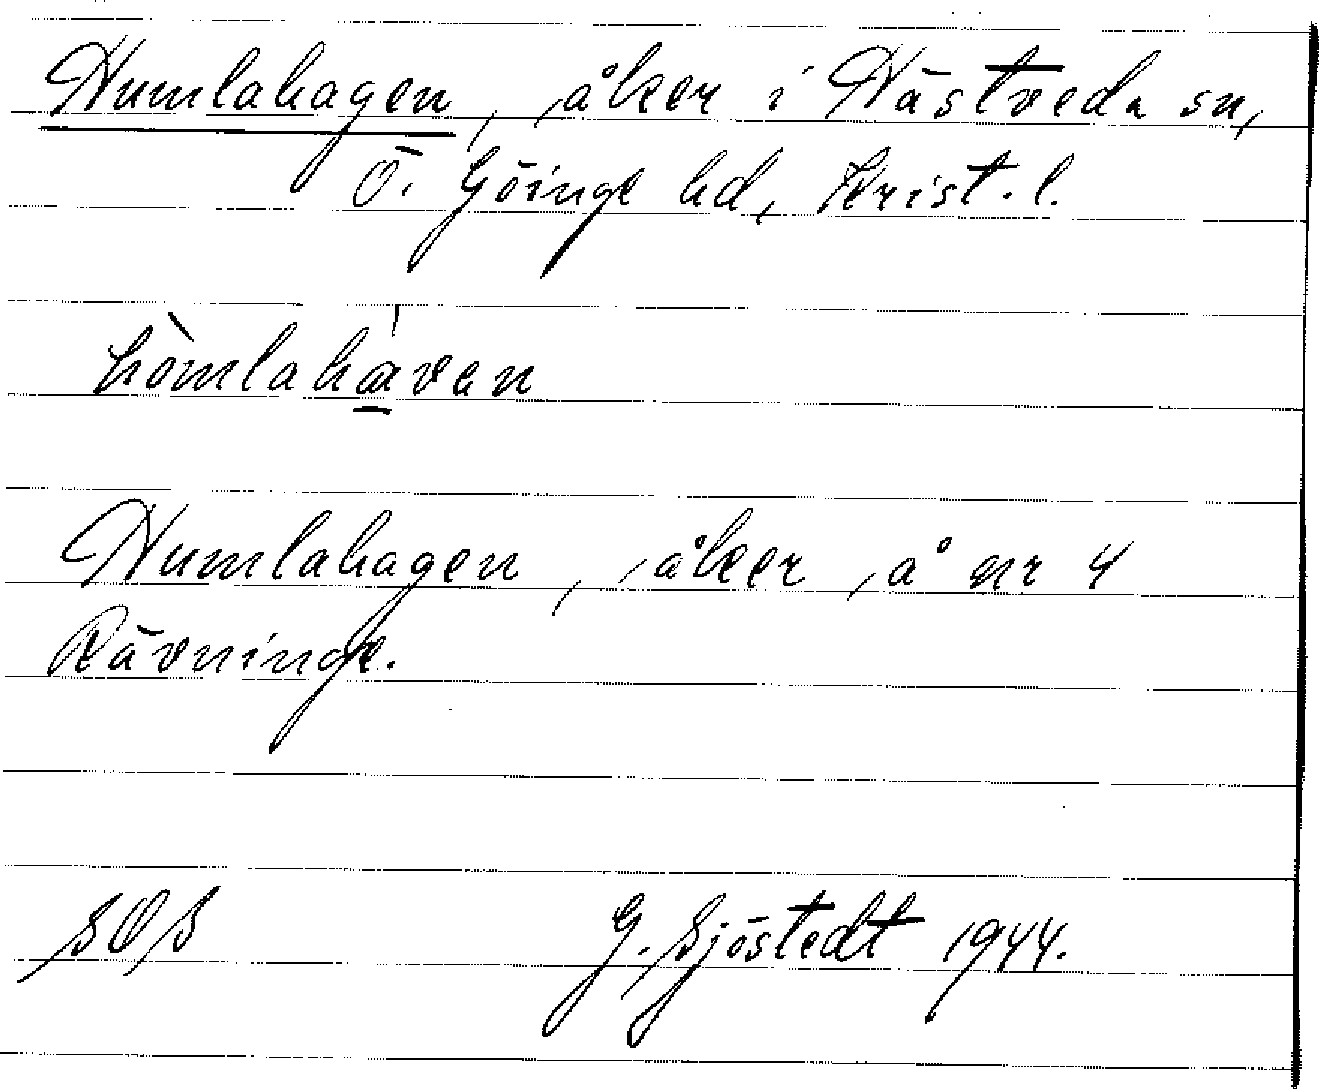 Humlahagen, åker i Hästveda sn,
Ö. Göinge hd, Krist. l.
hòmlahá̱van
Humlahagen, åker å nr 4
Rävninge.
SOS G. Sjöstedt 1944.